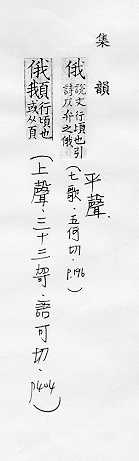 集韻
平聲.
俄 說文行頃也引詩仄弁之俄
(七歌.五何切.p.196)
俄𩑾 行頃也或从頁
(上聲.三十三哿.語可切.p404)